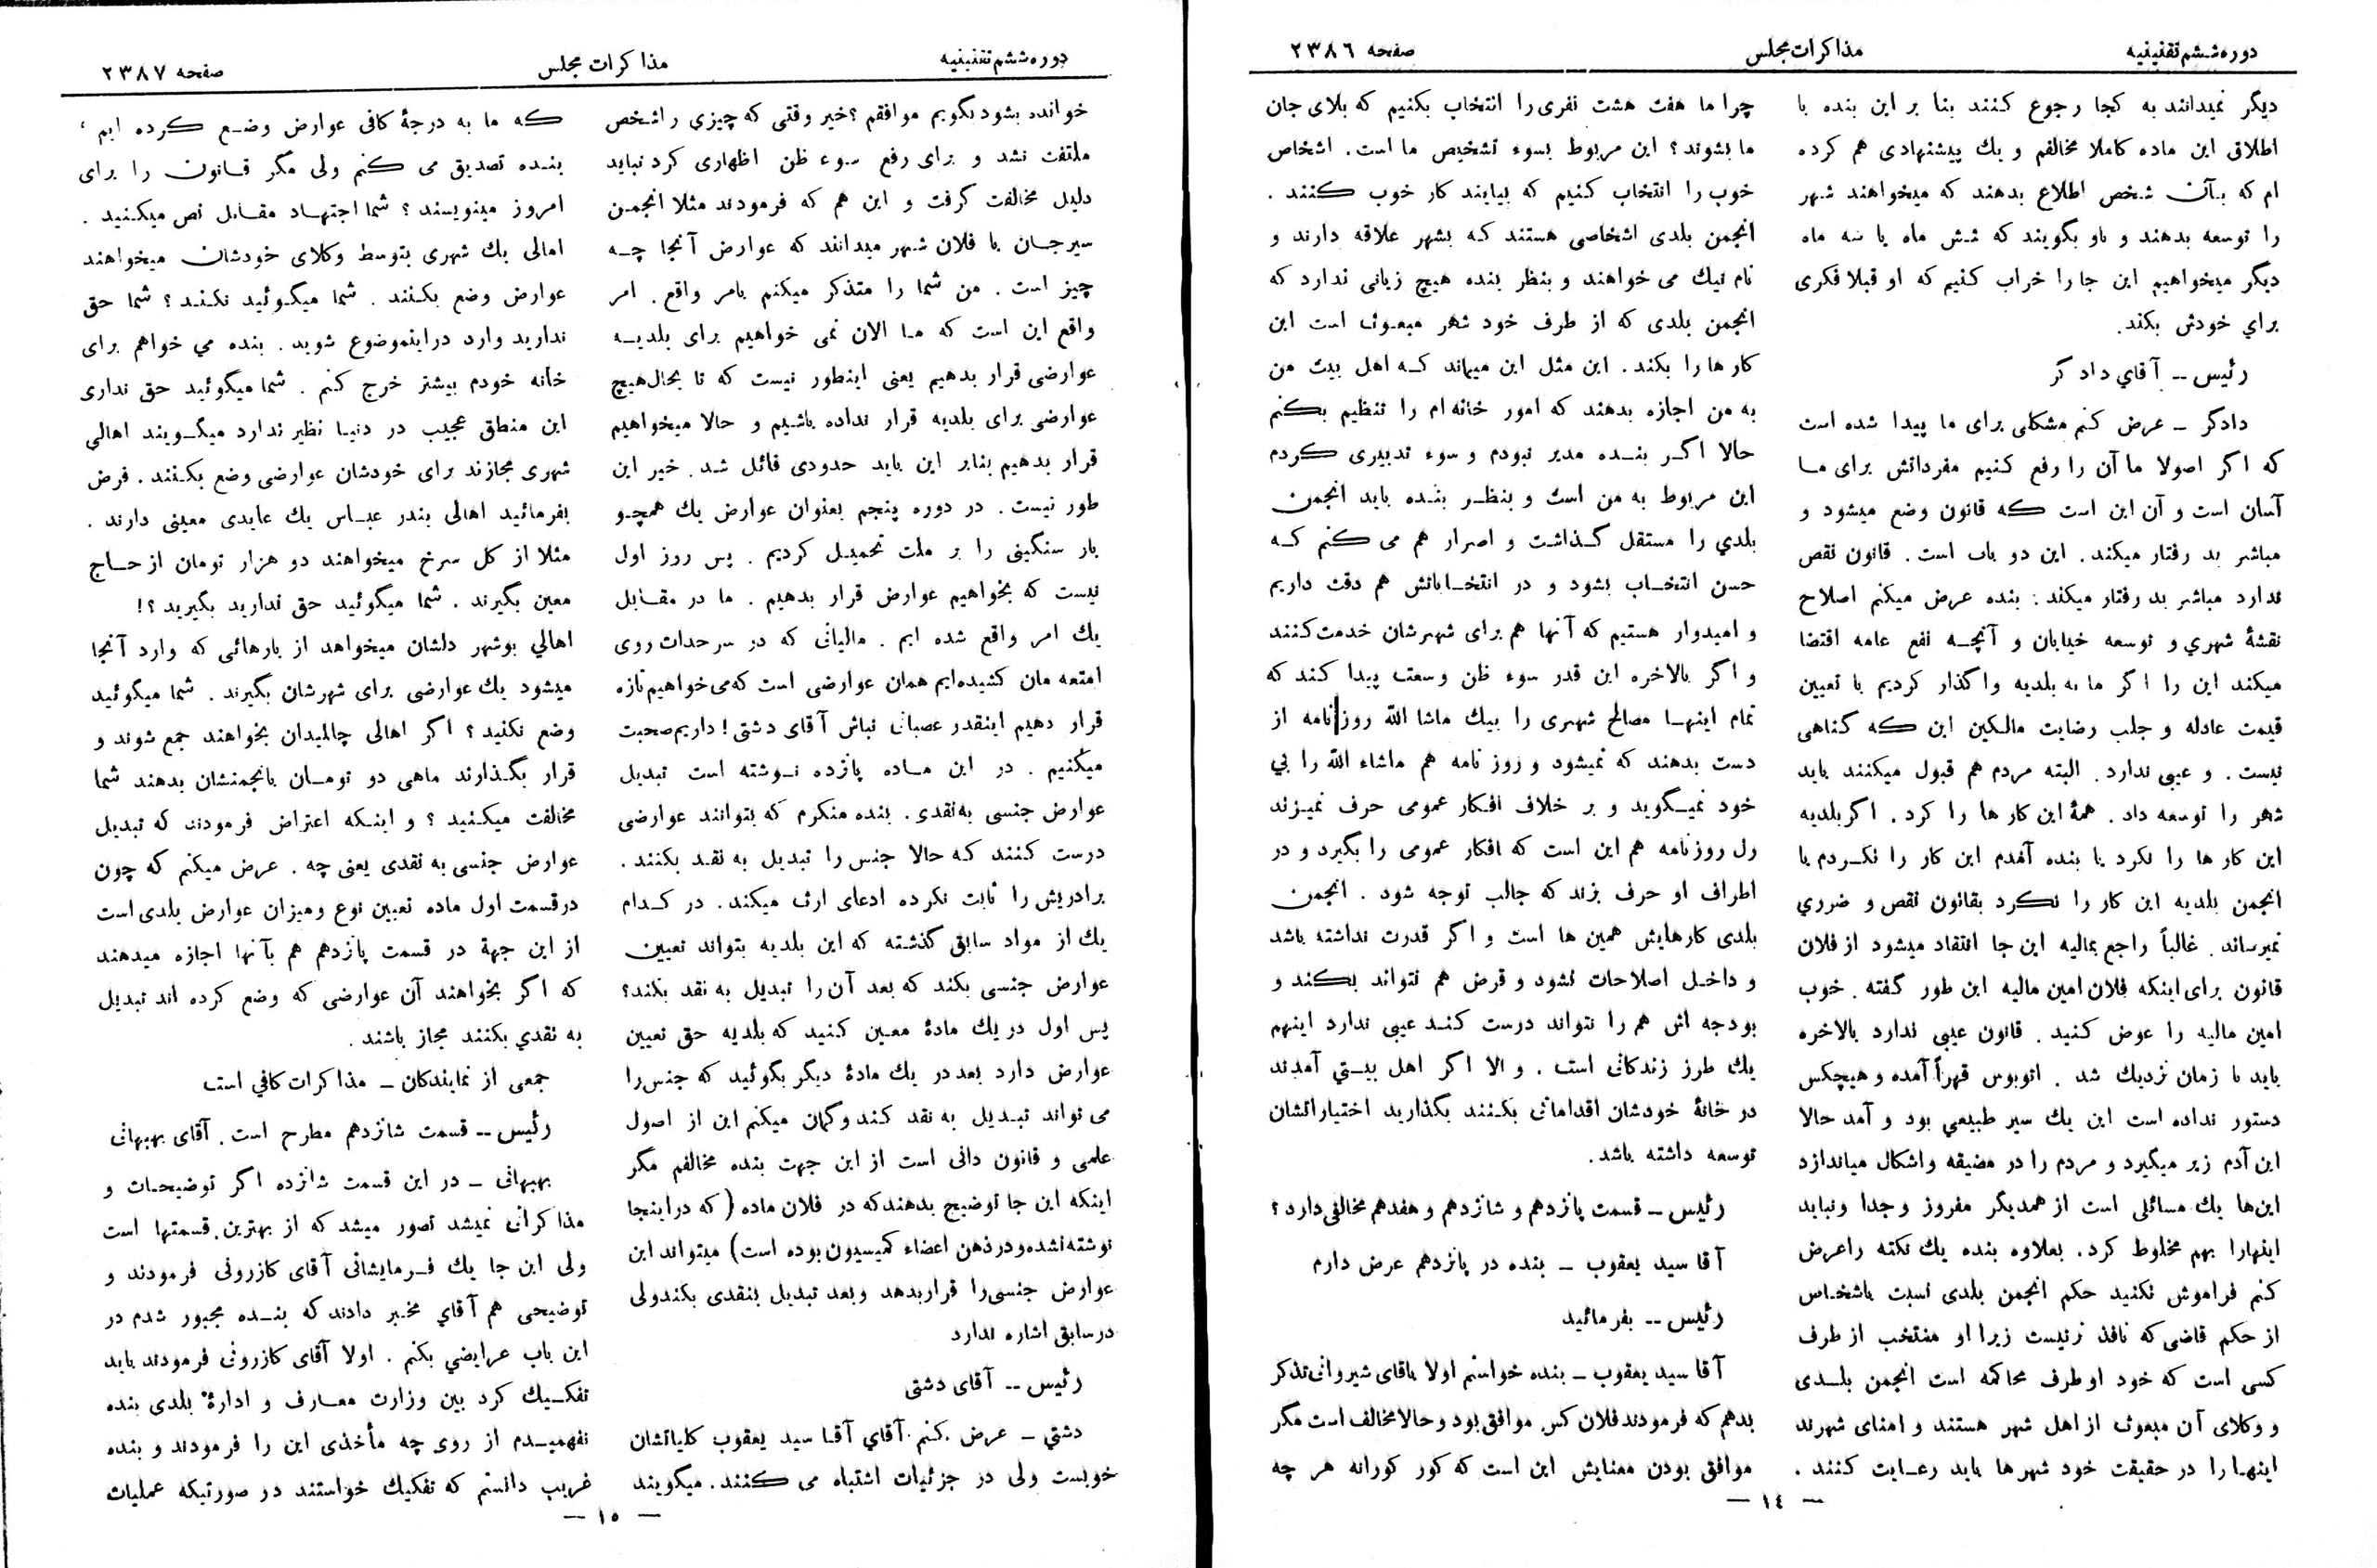 دوره ششم تقنینیه مذاکرات مجلس صفحه ۲۳۸۶
دیگر نمیدانند به کجا رجوع کنند بنا بر این بنده با
اطلاق این ماده کاملا مخالفم و یك پیشنهادی هم کرده
ام که بآن شخص اطلاع بدهند که میخواهند شهر
را توسعه بدهند و باو بگویند که شش ماه یا سه ماه
دیگر میخواهیم این جا را خراب کنیم که او قبلا فکری
برای خودش بکند.
رئیس -- آقای دادگر
دادگر - عرض کنم مشکلی برای ما پیدا شده است
که اگر اصولا ما آن را رفع کنیم مفرداتش برای ما
آسان است و آن این است که قانون وضع میشود و
مباشر بد رفتار میکند. این دو باب است. قانون نقص
ندارد مباشر بد رفتار میکند: بنده عرض میکنم اصلاح
نقشهٔ شهری و توسعه خیابان و آنچه نفع عامه اقتضا
میکند این را اگر ما به بلدیه واگذار کردیم با تعیین
قیمت عادله و جلب رضایت مالکین این که گناهی
نیست. و عیبی ندارد. البته مردم هم قبول میکنند باید
شهر را توسعه داد. همهٔ این کار ها را کرد. اگر بلدیه
این کار ها را نکرد یا بنده آمدم این کار را نکردم یا
انجمن بلدیه این کار را نکرد بقانون نقص و ضرری
نمیرساند. غالباً راجع بمالیه این جا انتقاد میشود از فلان
قانون برای اینکه فلان امین مالیه این طور گفته. خوب
امین مالیه را عوض کنید. قانون عیبی ندارد بالاخره
باید با زمان نزدیك شد. اتوبوس قهراً آمده و هیچکس
دستور نداده است این یك سیر طبیعی بود و آمد حالا
این آدم زیر میگیرد و مردم را در مضیقه و اشکال میاندازد
این‌ها یك مسائلی است از همدیگر مفروز و جدا و نباید
اینهارا بهم مخلوط کرد. بعلاوه بنده یك نکته را عرض
کنم فراموش نکنید حکم انجمن بلدی نسبت باشخاص
از حکم قاضی که نافذ تر نیست زیرا او منتخب از طرف
کسی است که خود او طرف محاکمه است انجمن بلدی
و وکلای آن مبعوث از اهل شهر هستند و امنای شهرند
اینها را در حقیقت خود شهر ها باید رعایت کنند.
چرا ما هفت هشت نفری را انتخاب بکنیم که بلای جان
ما بشوند؟ این مربوط بسوء تشخیص ما است. اشخاص
خوب را انتخاب کنیم که بیایند کار خوب کنند.
انجمن بلدی اشخاصی هستند که بشهر علاقه دارند و
نام نیك می خواهند و بنظر بنده هیچ زیانی ندارد که
انجمن بلدی که از طرف خود شهر مبعوث است این
کار ها را بکند. این مثل این میماند که اهل بیت من
به من اجازه بدهند که امور خانه‌ام را تنظیم بکنم
حالا اگر بنده مدیر نبودم و سوء تدبیری کردم
این مربوط به من است و بنظر بنده باید انجمن
بلدی را مستقل گذاشت و اصرار هم می کنم که
حسن انتخاب بشود و در انتخاباتش هم دقت داریم
و امیدوار هستیم که آنها هم برای شهرشان خدمت کنند
و اگر بالاخره این قدر سوء ظن وسعت پیدا کند که
تمام اینها مصالح شهری را بیك ماشا الله روزنامه از
دست بدهند که نمیشود و روز نامه هم ماشاء الله را بی
خود نمیگوید و بر خلاف افکار عمومی حرف نمیزند
رل روزنامه هم این است که افکار عمومی را بگیرد و در
اطراف او حرف بزند که جالب توجه شود. انجمن
بلدی کارهایش همین ها است و اگر قدرت نداشته باشد
و داخل اصلاحات نشود و قرض هم نتواند بکند و
بودجه اش هم را نتواند درست کند عیبی ندارد اینهم
یك طرز زندگانی است. و الا اگر اهل بیتی آمدند
در خانهٔ خودشان اقداماتی بکنند بگذارید اختیاراتشان
توسعه داشته باشد.
رئیس - قسمت پانزدهم و شانزدهم و هفدهم مخالفی دارد؟
آقا سید یعقوب - بنده در پانزدهم عرض دارم
رئیس -- بفرمائید
آقا سید یعقوب - بنده خواستم اولا باقای شیروانی تذکر
بدهم که فرمودند فلان کس موافق بود و حالا مخالف است مگر
موافق بودن معنایش این است که کور کورانه هر چه
— ١٤ —
دوره ششم تقنینیه مذاکرات مجلس صفحه ۲۳۸۷
خوانده بشود بگویم موافقم؟ خیر وقتی که چیزی را شخص
ملتفت نشد و برای رفع سوء ظن اظهاری کرد نباید
دلیل مخالفت گرفت و این هم که فرمودند مثلا انجمن
سیرجان یا فلان شهر میدانند که عوارض آنجا چه
چیز است. من شما را متذکر میکنم بامر واقع. امر
واقع این است که ما الان نمی خواهیم برای بلدیه
عوارضی قرار بدهیم یعنی اینطور نیست که تا بحال هیچ
عوارضی برای بلدیه قرار نداده باشیم و حالا میخواهیم
قرار بدهیم بنابر این باید حدودی قائل شد. خیر این
طور نیست. در دوره پنجم بعنوان عوارض یك همچو
بار سنگینی را بر ملت تحمیل کردیم. پس روز اول
نیست که بخواهیم عوارض قرار بدهیم. ما در مقابل
یك امر واقع شده ایم. مالیاتی که در سرحدات روی
امتعه مان کشیده‌ایم همان عوارضی است که می خواهیم تازه
قرار دهیم اینقدر عصبانی نباش آقای دشتی! داریم صحبت
میکنیم. در این ماده پانزده نوشته است تبدیل
عوارض جنسی به نقدی. بنده منکرم که بتوانند عوارضی
درست کنند که حالا جنس را تبدیل به نقد بکنند.
برادریش را ثابت نکرده ادعای ارث میکند. در کدام
یك از مواد سابق گذشته که این بلدیه بتواند تعیین
عوارض جنسی بکند که بعد آن را تبدیل به نقد بکند؟
پس اول در یك مادهٔ معین کنید که بلدیه حق تعیین
عوارض دارد بعد در یك مادهٔ دیگر بگوئید که جنس را
می تواند تبدیل به نقد کند و گمان میکنم این از اصول
علمی و قانون دانی است از این جهت بنده مخالفم مگر
اینکه این جا توضیح بدهند که در فلان ماده (که در اینجا
نوشته نشده و در ذهن اعضاء کمیسیون بوده است) میتواند این
عوارض جنسی را قرار بدهد و بعد تبدیل بنقدی بکند ولی
در سابق اشاره ندارد
رئیس -- آقای دشتی
دشتی - عرض کنم آقای آقا سید یعقوب کلیاتشان
خوبست ولی در جزئیات اشتباه می کنند. میگویند
که ما به درجهٔ کافی عوارض وضع کرده ایم،
بنده تصدیق می کنم ولی مگر قانون را برای
امروز مینویسند؟ شما اجتهاد مقابل نص میکنید.
اهالی یك شهری بتوسط وکلای خودشان میخواهند
عوارض وضع بکنند. شما میگوئید نکنند؟ شما حق
ندارید وارد در اینموضوع شوید. بنده می خواهم برای
خانه خودم بیشتر خرج کنم. شما میگوئید حق نداری
این منطق عجیب در دنیا نظیر ندارد میگویند اهالی
شهری مجازند برای خودشان عوارضی وضع بکنند. فرض
بفرمائید اهالی بندر عباس یك عایدی معینی دارند.
مثلا از گل سرخ میخواهند دو هزار تومان از حاج
معین بگیرند. شما میگوئید حق ندارید بگیرید؟!
اهالی بوشهر دلشان میخواهد از بارهائی که وارد آنجا
میشود یك عوارضی برای شهرشان بگیرند. شما میگوئید
وضع نکنید؟ اگر اهالی چالمیدان بخواهند جمع شوند و
قرار بگذارند ماهی دو تومان بانجمنشان بدهند شما
مخالفت میکنید؟ و اینکه اعتراض فرمودند که تبدیل
عوارض جنسی به نقدی یعنی چه. عرض میکنم که چون
در قسمت اول ماده تعیین نوع و میزان عوارض بلدی است
از این جهة در قسمت پانزدهم هم بآنها اجازه میدهند
که اگر بخواهند آن عوارضی که وضع کرده اند تبدیل
به نقدی بکنند مجاز باشند.
جمعی از نمایندگان - مذاکرات کافی است
رئیس -- قسمت شانزدهم مطرح است. آقای بهبهانی
بهبهانی - در این قسمت شانزده اگر توضیحات و
مذاکراتی نمیشد تصور میشد که از بهترین قسمتها است
ولی این جا یك فرمایشاتی آقای کازرونی فرمودند و
توضیحی هم آقای مخبر دادند که بنده مجبور شدم در
این باب عرایضی بکنم. اولا آقای کازرونی فرمودند باید
تفکیك کرد بین وزارت معارف و ادارهٔ بلدی بنده
نفهمیدم از روی چه مأخذی این را فرمودند و بنده
غریب دانستم که تفکیك خواستند در صورتیکه عملیات
— ١٥ —